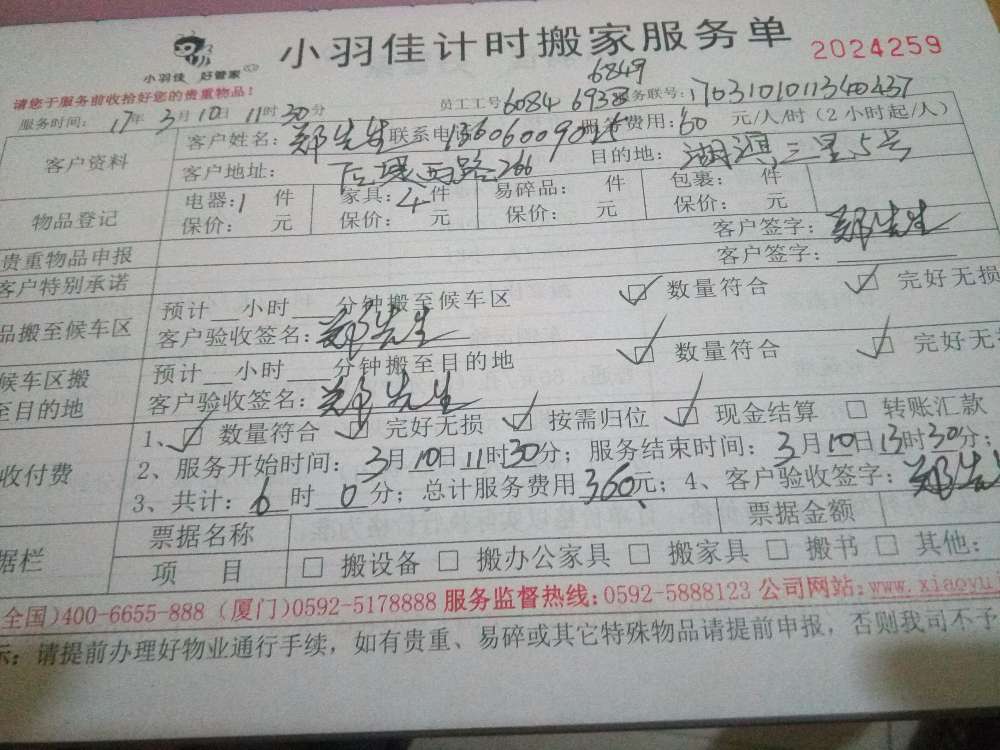 小羽佳计时搬家服务单
2024259
小羽佳 好管家
请您于服务前收拾好您的贵重物品！
服务时间： 17年 3月 10日 11时 30分 员工工号 6084 6938 6849 服务联号：1703101011360437
客户资料 客户姓名：郑先生 联系电话 服务费用：60 元/人/时（2小时起/人）
客户地址： 后堤西路266 目的地： 湖滨三里5号
物品登记 电器：1 件 家具：4件 易碎品： 件 包裹： 件
保价： 元 保价： 元 保价： 元 保价： 元
客户签字：郑先生
贵重物品申报 客户签字：
客户特别承诺
品搬至候车区 预计__小时___分钟搬至候车区 ☑ 数量符合 ☑ 完好无损
客户验收签名：郑先生
候车区搬至目的地 预计__小时___分钟搬至目的地 ☑ 数量符合 ☑ 完好无
客户验收签名：郑先生
收付费 1、☑ 数量符合 ☑ 完好无损 ☑ 按需归位 ☑ 现金结算 □ 转账汇款
2、服务开始时间：3月10日11时30分；服务结束时间：3月10日13时30分；
3、共计：6 时 0分；总计服务费用 360元；4、客户验收签字：郑先生
据栏 票据名称 票据金额
项 目 □ 搬设备 □ 搬办公家具 □ 搬家具 □ 搬书 □ 其他：
全国)400-6655-888（厦门)0592-5178888 服务监督热线：0592-5888123 公司网站：www.xiaoyu
示：请提前办理好物业通行手续，如有贵重、易碎或其它特殊物品请提前申报，否则我司不予